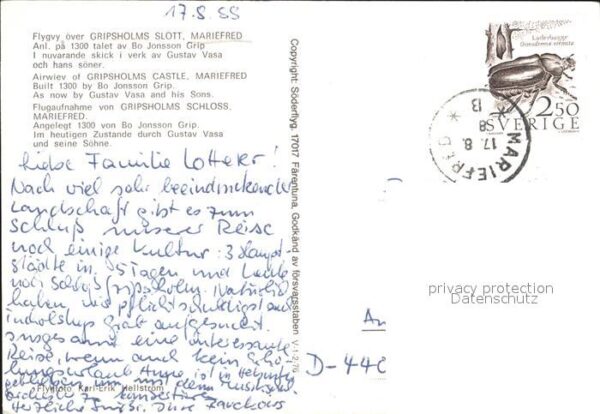 17.8.88
Flygvy över GRIPSHOLMS SLOTT, MARIEFRED
Anl. på 1300 talet av Bo Jonsson Grip
I nuvarande skick i verk av Gustav Vasa
och hans söner.
Airwiev of GRIPSHOLMS CASTLE, MARIEFRED
Built 1300 by Bo Jonsson Grip.
As now by Gustav Vasa and his Sons.
Flugaufnahme von GRIPSHOLMS SCHLOSS,
MARIEFRED.
Angelegt 1300 von Bo Jonsson Grip.
Im heutigen Zustande durch Gustav Vasa
und seine Söhne.
Liebe Familie Lotterer!
Nach viel sehr beeindruckender
Landschaft gibt es zum
Schluß unserer Reise
noch einige Kultur: 3 Haupt-
städte in 5 Tagen und heute
noch Schloß Gripsholm. Natürlich
haben wir pflichtschuldigst auch
Grab aufgesucht.
Insgesamt eine interessante
Reise, wenn auch kein Erho-
lungsurlaub. Anne ist in
geblieben, um mit dem Musikschul-
orchester zu
Herzliche Grüße Ihre
Flygfoto Karl-Erik Hellström
Copyright: Söderflyg, 17017 Färentuna. Godkänd av försvarsstaben V-1-2-76
Läderbagge
Osmoderma eremita
2.50
SVERIGE
MARIEFRED
17.8.
88
B
privacy protection
Datenschutz
An
D-440